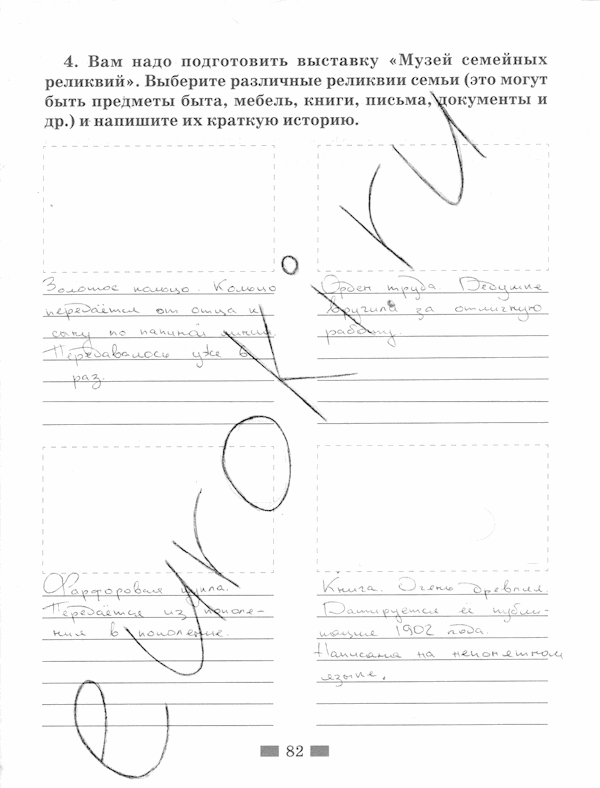 4. Вам надо подготовить выставку «Музей семейных
реликвий». Выберите различные реликвии семьи (это могут
быть предметы быта, мебель, книги, письма, документы и
др.) и напишите их краткую историю.
Золотое кольцо. Кольцо
передаётся от отца к
сыну по папиной линии
Передавалось уже 6
раз.
Орден труда. Дедушке
вручили за отличную
работу.
Фарфоровая
Передаётся из поколе-
ния в поколение.
Книга. Очень древняя.
Датируется её публи-
кация 1902 года.
Написана на непонятном
языке.
82